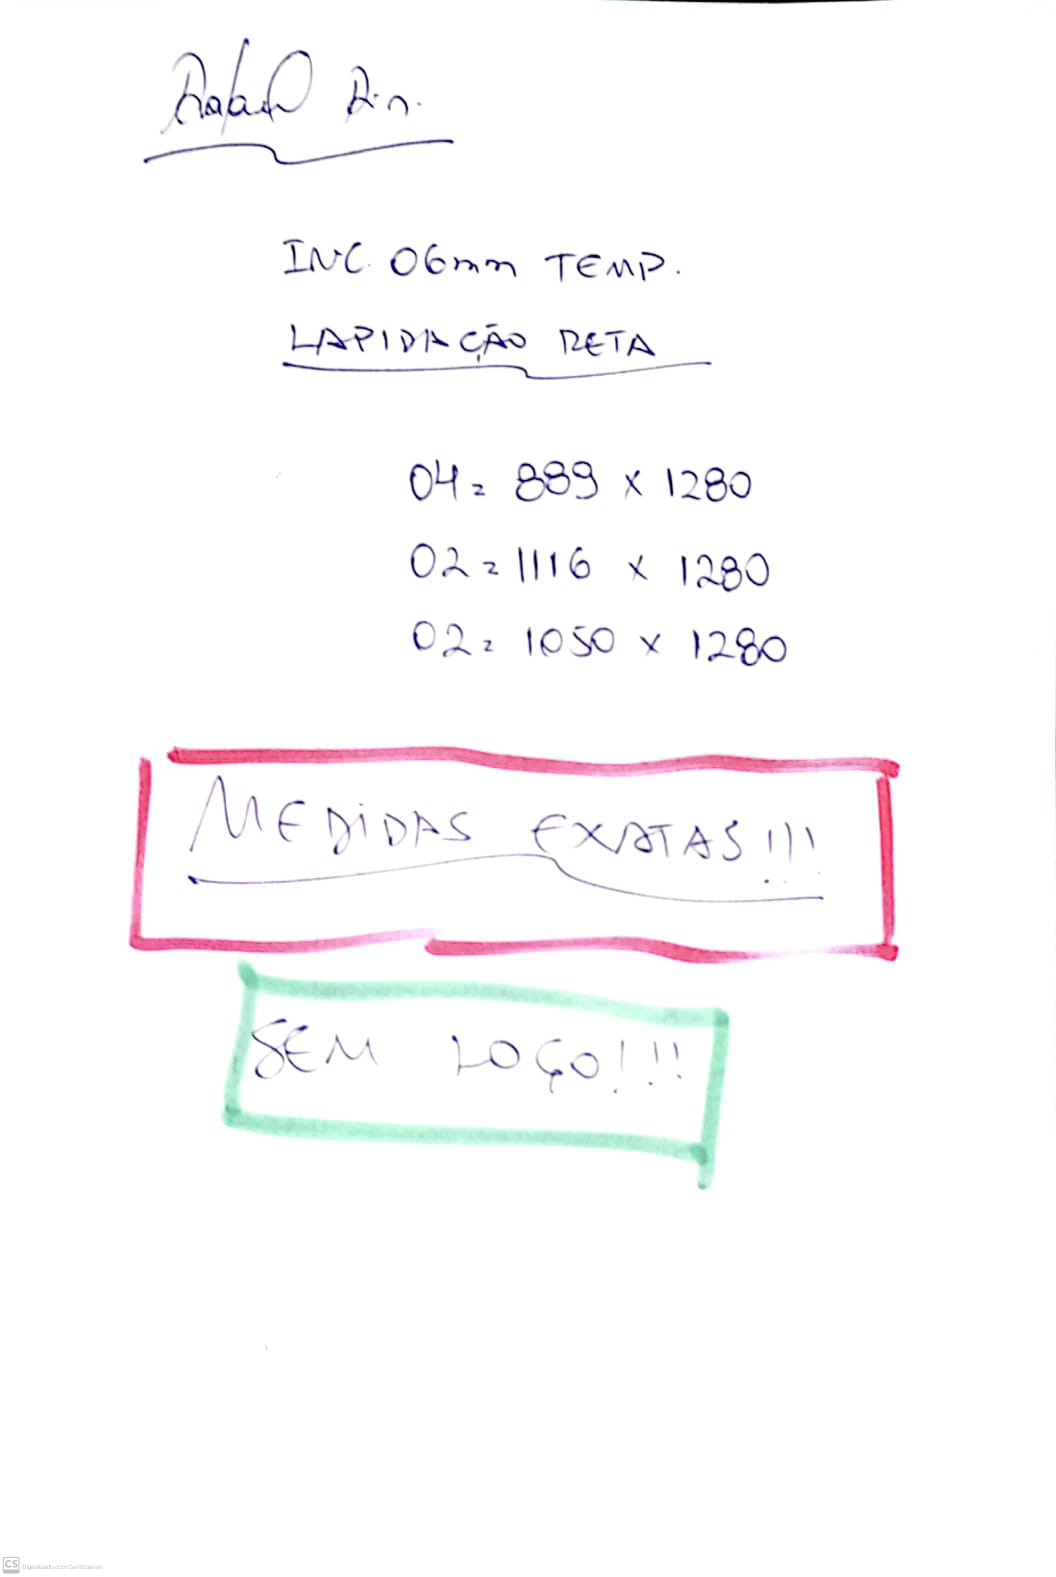 Rafael R.n.
INC. 06mm TEMP.
LAPIDAÇÃO RETA
04 = 889 x 1280
02 = 1116 x 1280
02 = 1050 x 1280
MEDIDAS EXATAS!!!
SEM LOGO!!!
CS Digitalizado com CamScanner